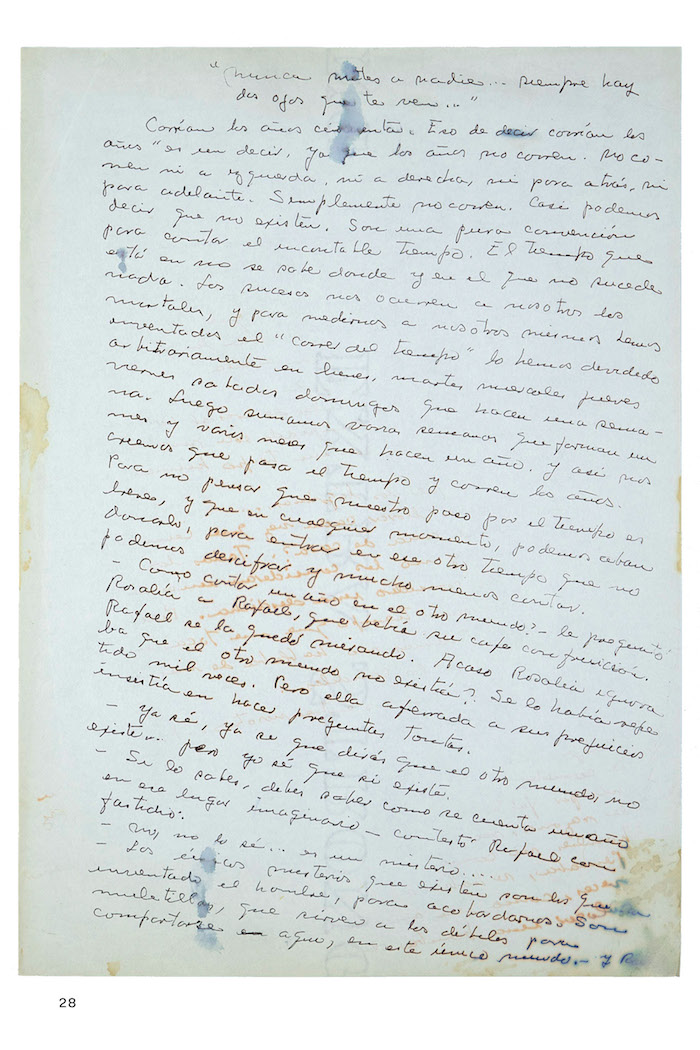 "(nunca mates a nadie... siempre hay
dos ojos que te ven..."
Corrían los años cincuenta. Eso de decir corrían los
años "es un decir, ya que los años no corren. No co-
rren ni a izquierda, ni a derecha, ni para atrás, ni
para adelante. Simplemente no corren. Casi podemos
decir que no existen. Son una pura convención
para contar el incontable tiempo. El tiempo que
está en no se sabe donde y en el que no sucede
nada. Los sucesos nos ocurren a nosotros los
mortales, y para medirnos a nosotros mismos hemos
inventados el "correr del tiempo" lo hemos devidedo
arbitrariamente en lunes, martes miercoles jueves
viernes sabados domingos que hacen una sema-
na. Luego sumamos varias semanas que forman un
mes y varios meses que hacen un año. y así nos
creemos que pasa el tiempo y corren los años.
Para no pensar que nuestro paso por el tiempo es
breve, y que en cualquier momento, podemos aban
donarlo, para entrar en ese otro tiempo que no
podemos descifrar y mucho menos contar.
- Como contar un año en el otro mundo? - le preguntó
Rosalía a Rafael, que bebía su cafe con fruición.
Rafael se la quedó mirando. Acaso Rosalía ignora
ba que el otro mundo no existía? Se lo había repe
tido mil veces. Pero ella aferrada a sus prejuicios
insistía en hacer preguntas tontas.
- Ya sé, ya se que dirás que el otro mundo, no
existe.. pero yo sé que si existe.
- Si lo sabes, debes saber como se cuenta un año
en ese lugar imaginario - contestó Rafael con
fastidio.
- No, no lo sé... es un misterio....
- Los únicos misterios que existen son los que
inventado el hombre, para acobardarnos. Son
muletillas, que sirven a los débiles para
comportarse en aquo, en este único mundo. - y R
28